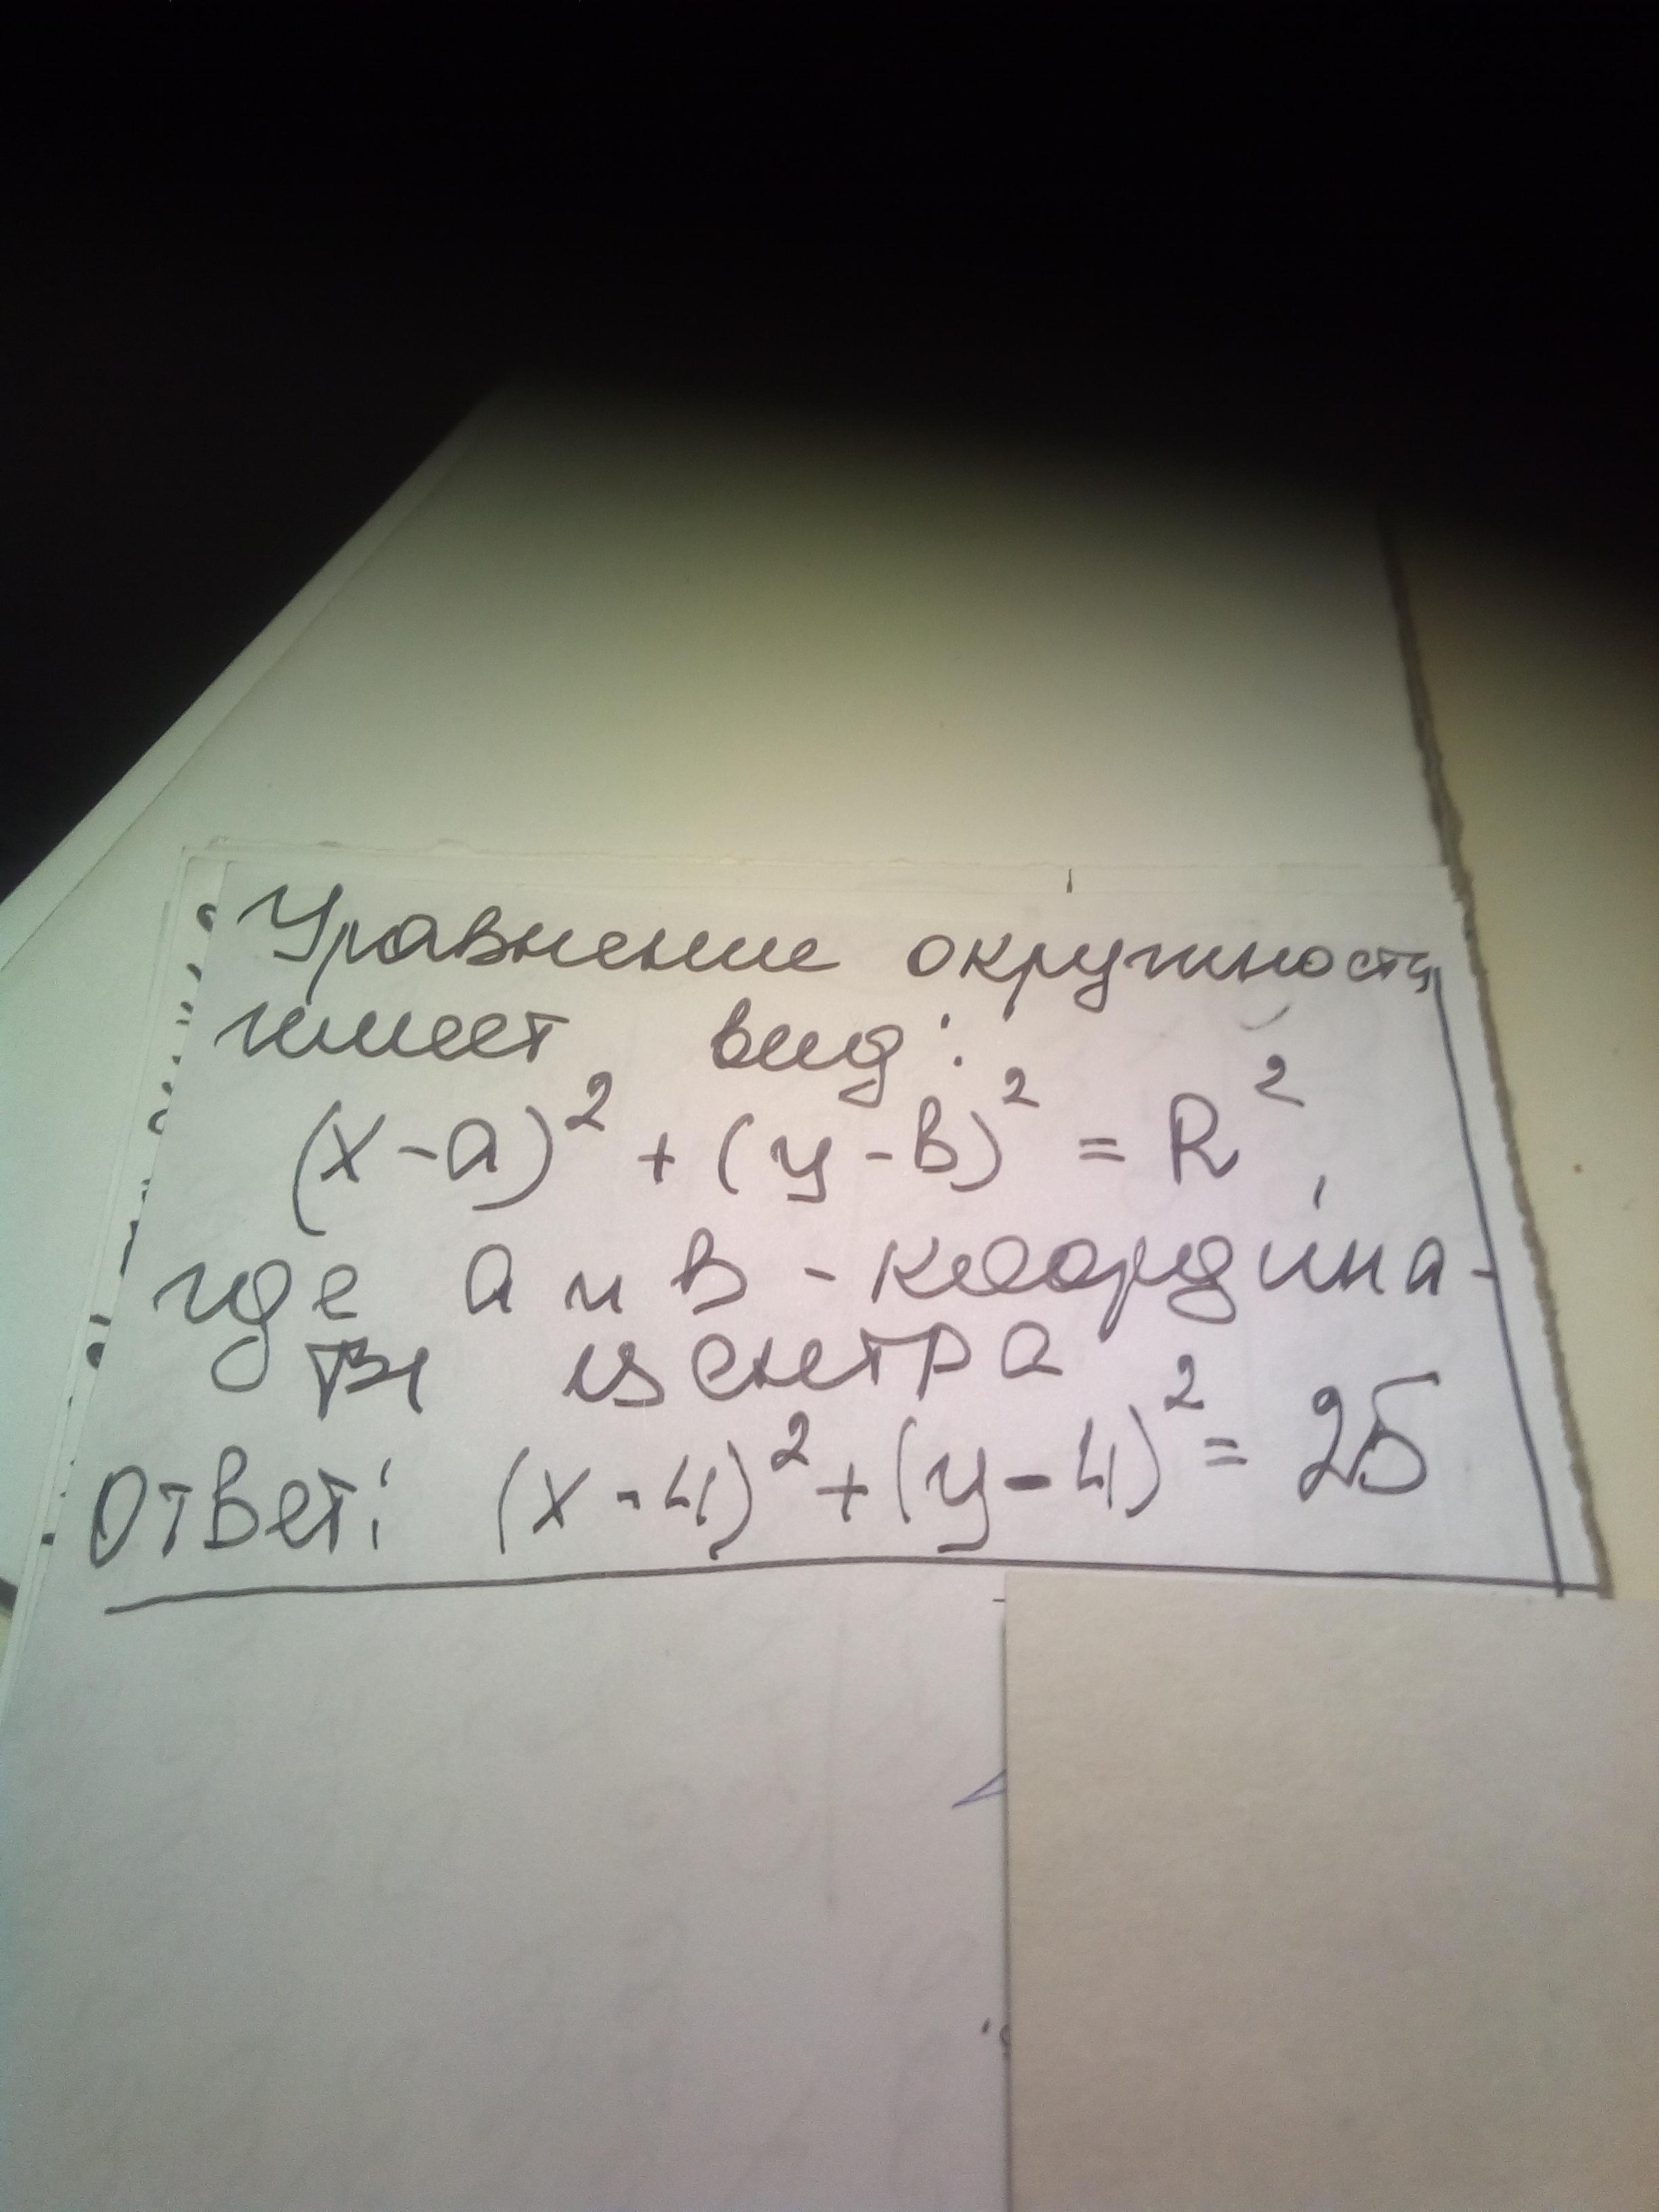 Уравнение окружности
имеет вид:
(x-a)² + (y-в)² = R²,
где а и в - координа-
ты центра
Ответ: (x-4)² + (y-4)² = 25